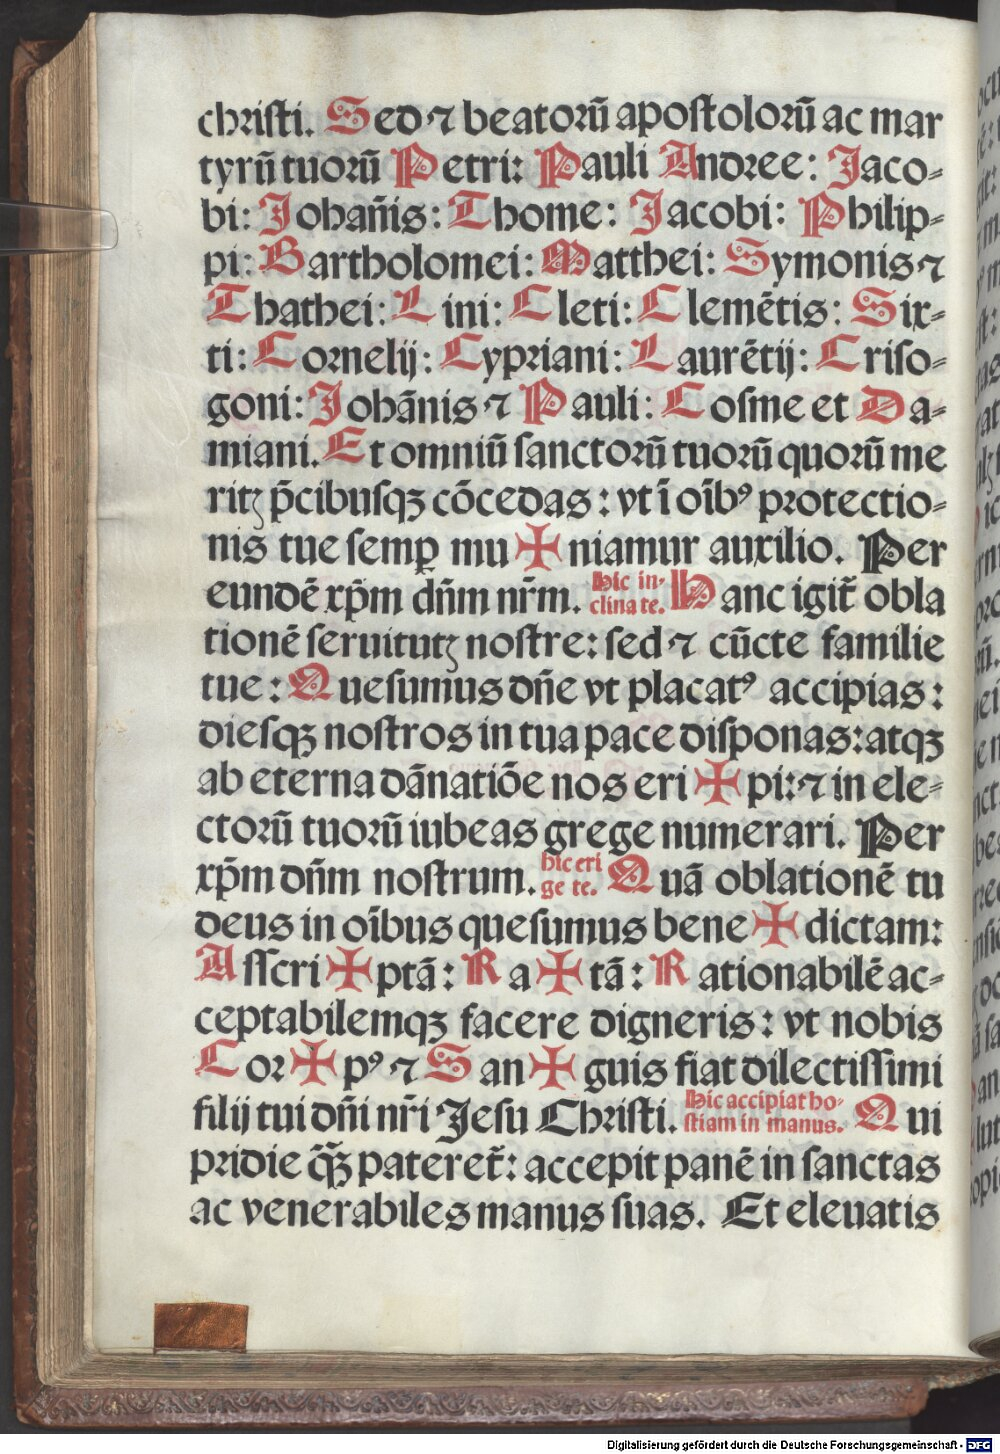 christi. Sed ⁊ beatorū apostolorū ac mar
tyrū tuorū Petri: Pauli Andree: Jaco-
bi: Johan̄is: Thome: Jacobi: Philip-
pi: Bartholomei: Matthei: Symonis ⁊
Thathei: Lini: Cleti: Clemētis: Six-
ti: Cornelij: Cypriani: Laurētij: Criso-
goni: Johānis ⁊ Pauli: Cosme et Da-
miani. Et omniū sanctorū tuorū quorū me
ritꝫ p̄cibusqꝫ cōcedas: vt ī oībꝰ protectio-
nis tue semꝑ mu ✠ niamur auxilio. Per
eundē xp̄m dn̄m nr̄m. Hic in-
clinate. Hanc igit̄ obla
tionē seruitutꝫ nostre: sed ⁊ cūcte familie
tue: Quesumus dn̄e vt placatꝰ accipias:
diesqꝫ nostros in tua pace disponas: atqꝫ
ab eterna dānatiōe nos eri ✠ pi: ⁊ in ele-
ctorū tuorū iubeas grege numerari. Per
xp̄m dn̄m nostrum. hic eri
ge te. Quā oblationē tu
deus in oībus quesumus bene ✠ dictam:
Asscri ✠ ptā: Ra ✠ tā: Rationabilē ac-
ceptabilemqꝫ facere digneris: vt nobis
Cor ✠ pꝰ ⁊ San ✠ guis fiat dilectissimi
filij tui dn̄i nr̄i Jesu Christi. Hic accipiat ho-
stiam in manus. Qui
pridie q̄ꝫ pateret̄: accepit panē in sanctas
ac venerabiles manus suas. Et eleuatis
Digitalisierung gefördert durch die Deutsche Forschungsgemeinschaft - DFG